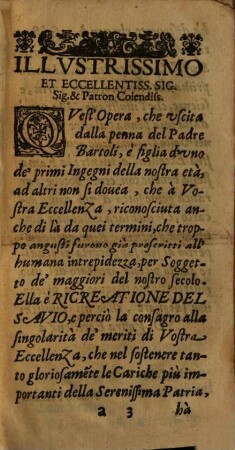 ILLVSTRISSIMO
ET ECCELLENTISS. SIG.
Sig. & Patron Colendiss.
QVest'Opera, che vscita
dalla penna del Padre
Bartoli, è figlia d'vno
de' primi Ingegni della nostra età,
ad altri non si douea, che à Vo-
stra Eccellenza, riconosciuta an-
che di là da quei termini, che trop-
po angusti furono già prescritti all'
humana intrepidezza, per Sogget-
to de' maggiori del nostro secolo.
Ella è RICREATIONE DEL
SAVIO, e perciò la consagro alla
singolarità de' meriti di Vostra
Eccellenza, che nel sostenere tan-
to gloriosamēte le Cariche più im-
portanti della Serenissima Patria,
a 3 hà